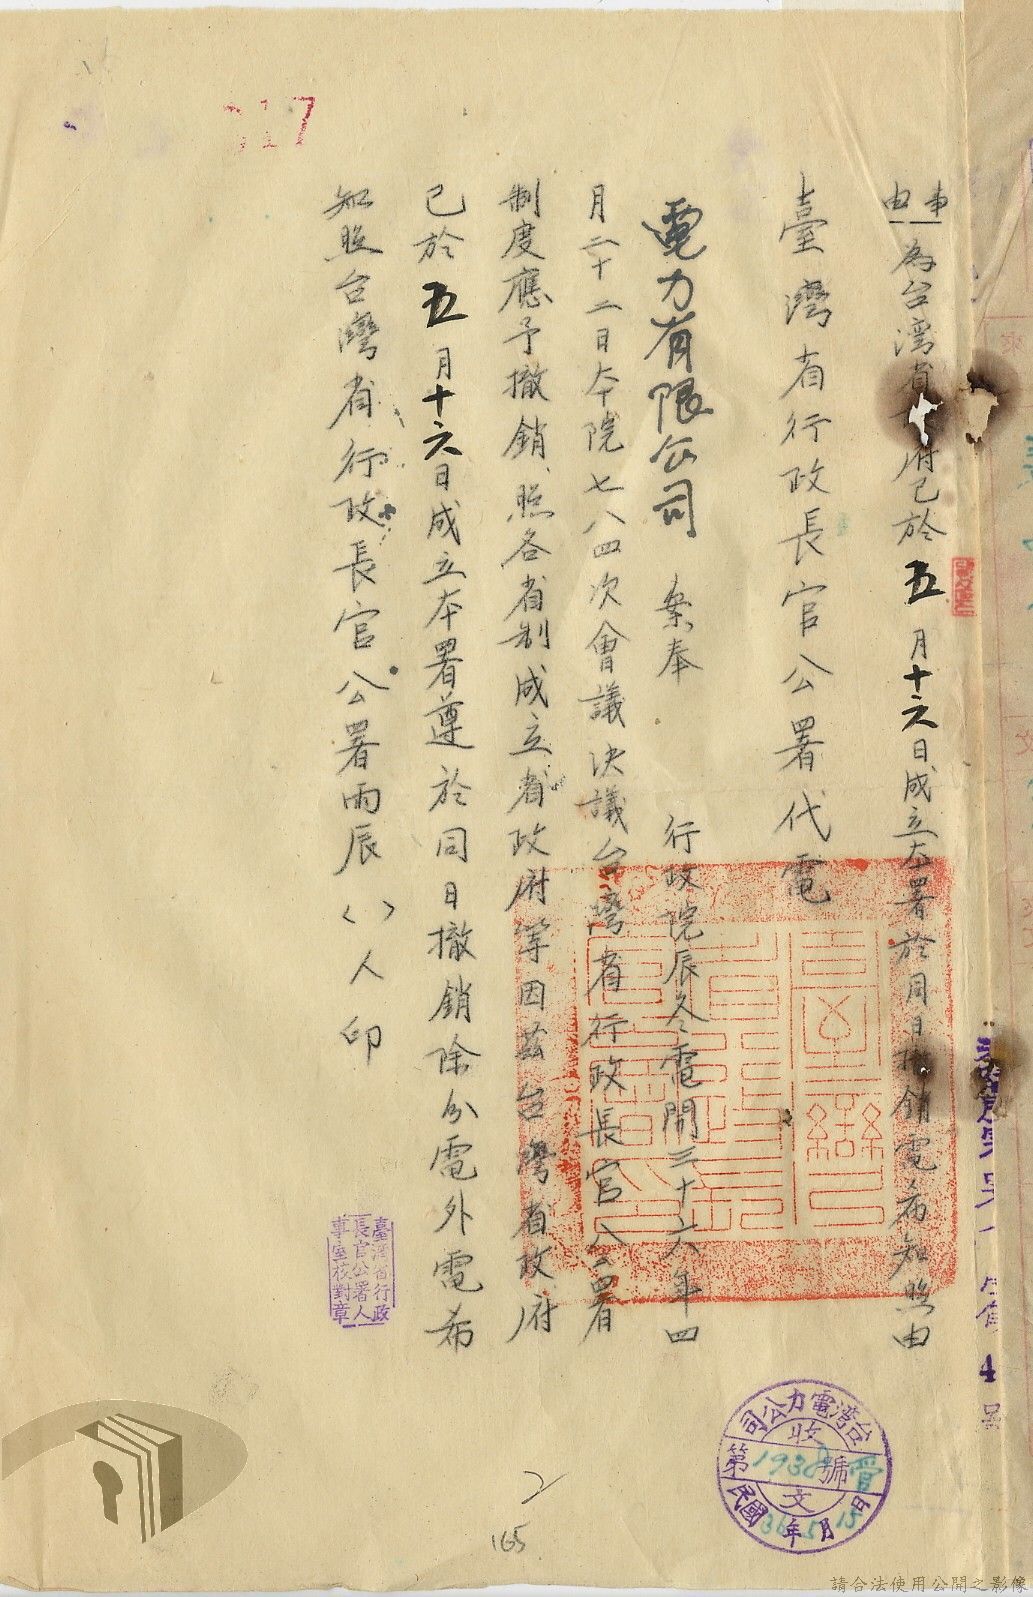 事由 為台湾省府已於五月十六日成立本署於同日撤銷電希知照由
臺灣省行政長官公署代電
電力有限公司 案奉 行政院辰冬電開三十六年四
月二十二日本院七八四次會議決議台灣省行政長官公署
制度應予撤銷、照各省制成立省政府等因茲台灣省政府
已於五月十六日成立本署遵於同日撤銷除分電外電希
知照台灣省行政長官公署兩辰()人印
臺灣省行政
長官公署人
事室校對章
台湾電力公司
收
第1938號
文
民國36年5月15日
165
請合法使用公開之影像